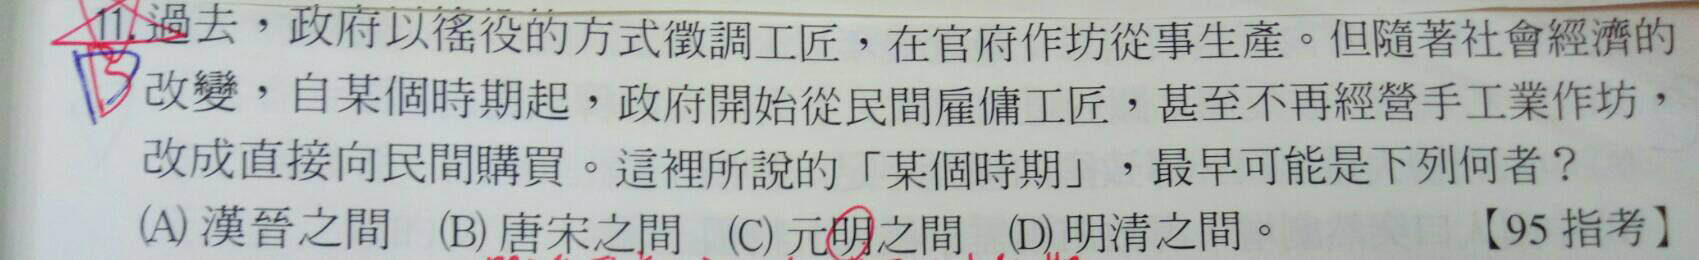 11. 過去，政府以徭役的方式徵調工匠，在官府作坊從事生產。但隨著社會經濟的
B 改變，自某個時期起，政府開始從民間雇傭工匠，甚至不再經營手工業作坊，
改成直接向民間購買。這裡所說的「某個時期」，最早可能是下列何者？
(A) 漢晉之間 (B) 唐宋之間 (C) 元明之間 (D) 明清之間。 【95 指考】